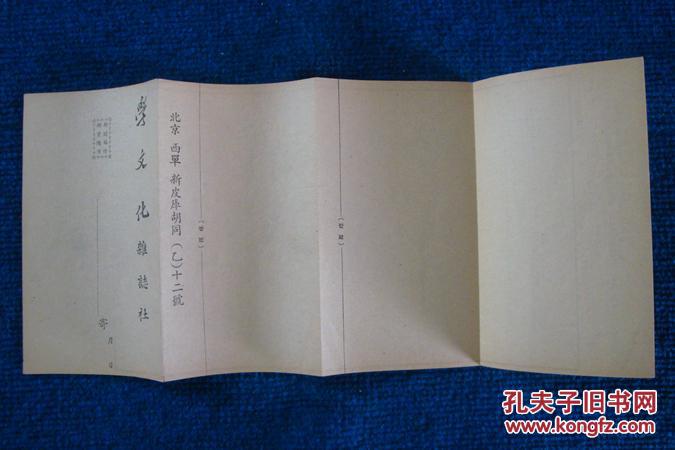 北京 西單 新皮庫胡同 (乙)十二號
學文化雜誌社
月 日
寄
孔夫子旧书网
www.kongfz.com